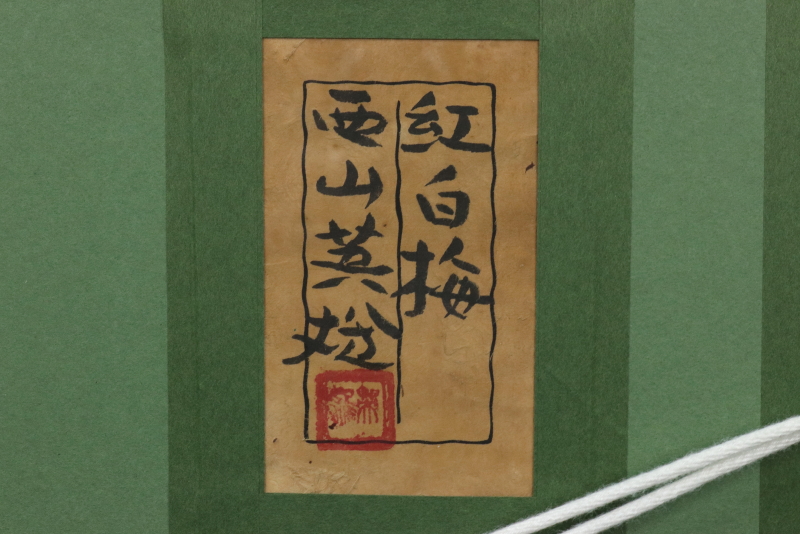 紅白梅
西山英雄